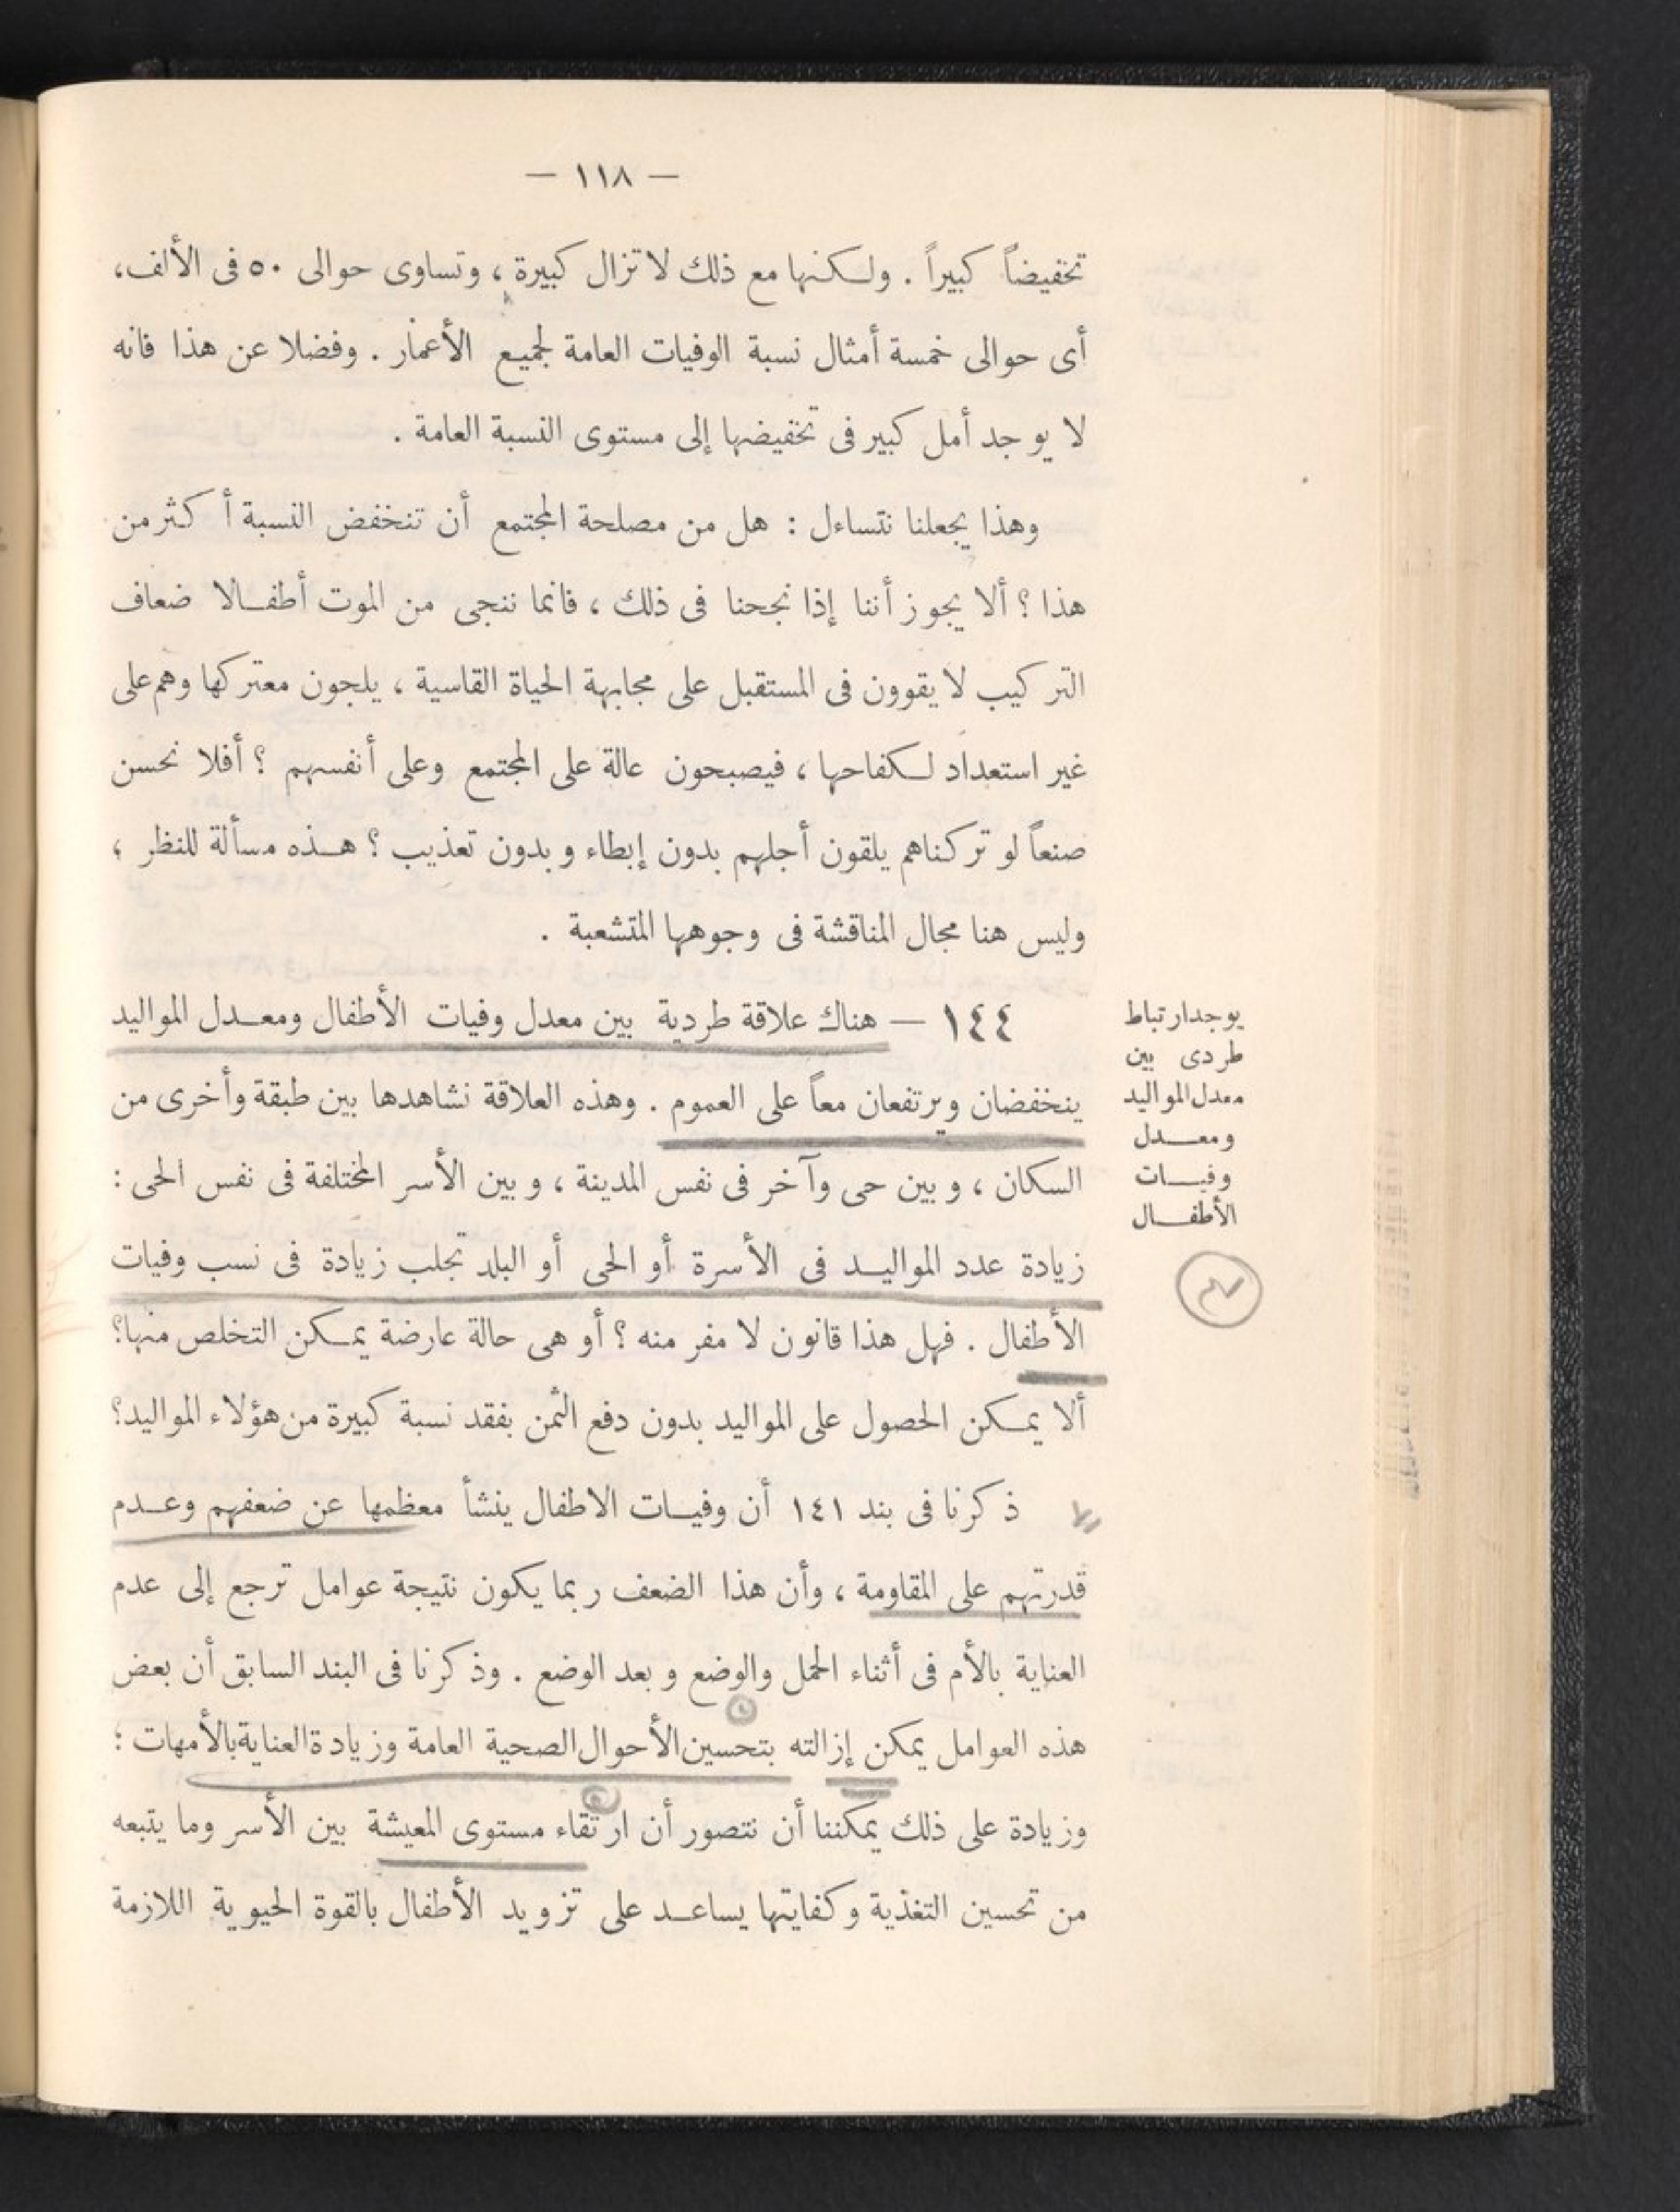 — ١١٨ —
تخفيضاً كبيراً . ولكنها مع ذلك لا تزال كبيرة ، وتساوى حوالى ٥٠ فى الألف،
أى حوالى خمسة أمثال نسبة الوفيات العامة لجميع الأعمار . وفضلا عن هذا فانه
لا يوجد أمل كبير فى تخفيضها إلى مستوى النسبة العامة .
وهذا يجعلنا نتساءل : هل من مصلحة المجتمع أن تنخفض النسبة أكثر من
هذا ؟ ألا يجوز أننا إذا نجحنا فى ذلك ، فانما ننجى من الموت أطفالا ضعاف
التركيب لا يقوون فى المستقبل على مجابهة الحياة القاسية ، يلجون معتركها وهم على
غير استعداد لكفاحها ، فيصبحون عالة على المجتمع وعلى أنفسهم ؟ أفلا نحسن
صنعاً لو تركناهم يلقون أجلهم بدون إبطاء وبدون تعذيب ؟ هذه مسألة للنظر ،
وليس هنا مجال المناقشة فى وجوهها المتشعبة .
يوجد ارتباط
طردى بين
معدل المواليد
ومعدل
وفيات
الأطفال
١٤٤ — هناك علاقة طردية بين معدل وفيات الأطفال ومعدل المواليد
ينخفضان ويرتفعان معاً على العموم . وهذه العلاقة نشاهدها بين طبقة وأخرى من
السكان ، وبين حى وآخر فى نفس المدينة ، وبين الأسر المختلفة فى نفس الحى :
زيادة عدد المواليد فى الأسرة أو الحى أو البلد تجلب زيادة فى نسب وفيات
الأطفال . فهل هذا قانون لا مفر منه ؟ أو هى حالة عارضة يمكن التخلص منها؟
ألا يمكن الحصول على المواليد بدون دفع الثمن بفقد نسبة كبيرة من هؤلاء المواليد؟
ذكرنا فى بند ١٤١ أن وفيات الاطفال ينشأ معظمها عن ضعفهم وعدم
قدرتهم على المقاومة ، وأن هذا الضعف ربما يكون نتيجة عوامل ترجع إلى عدم
العناية بالأم فى أثناء الحمل والوضع وبعد الوضع . وذكرنا فى البند السابق أن بعض
هذه العوامل يمكن إزالته بتحسين الأحوال الصحية العامة وزيادة العناية بالأمهات ؛
وزيادة على ذلك يمكننا أن نتصور أن ارتقاء مستوى المعيشة بين الأسر وما يتبعه
من تحسين التغذية وكفايتها يساعد على تزويد الأطفال بالقوة الحيوية اللازمة